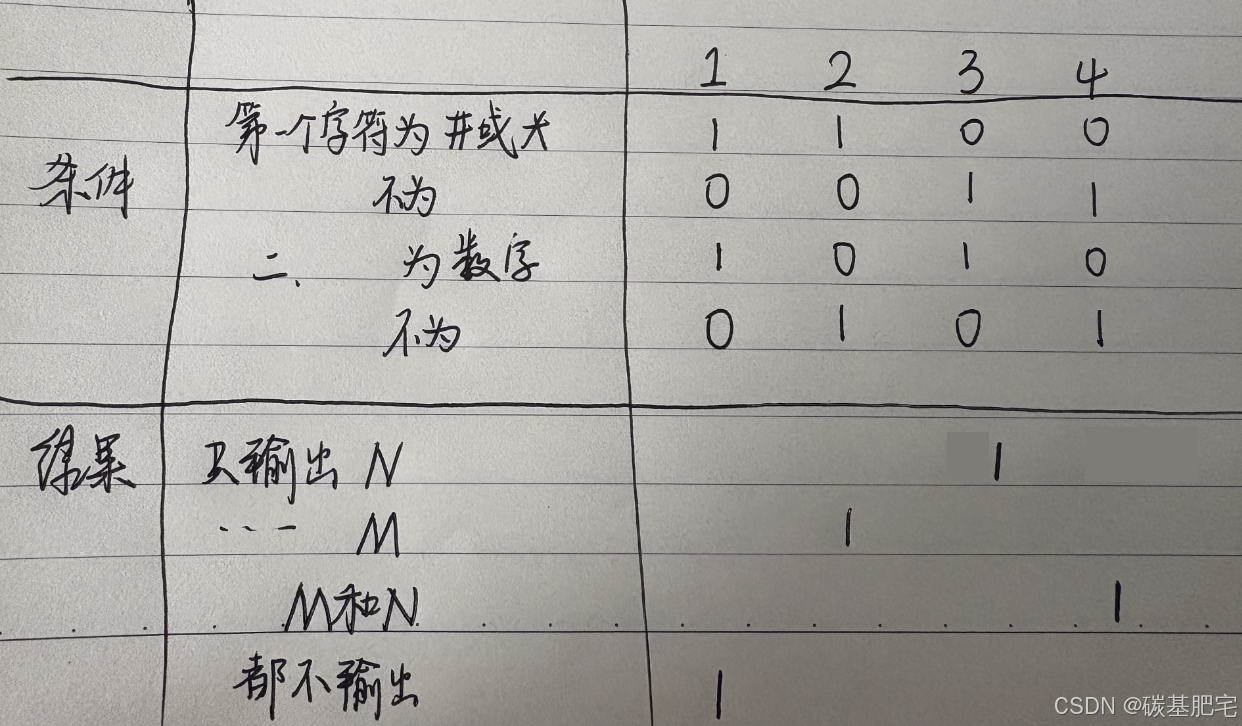 1 2 3 4
条件 第一个字符为 #或* 1 1 0 0
不为 0 0 1 1
二、 为数字 1 0 1 0
不为 0 1 0 1
结果 只输出 N 1
... — M 1
M和N 1
都不输出 1
CSDN @碳基肥宅